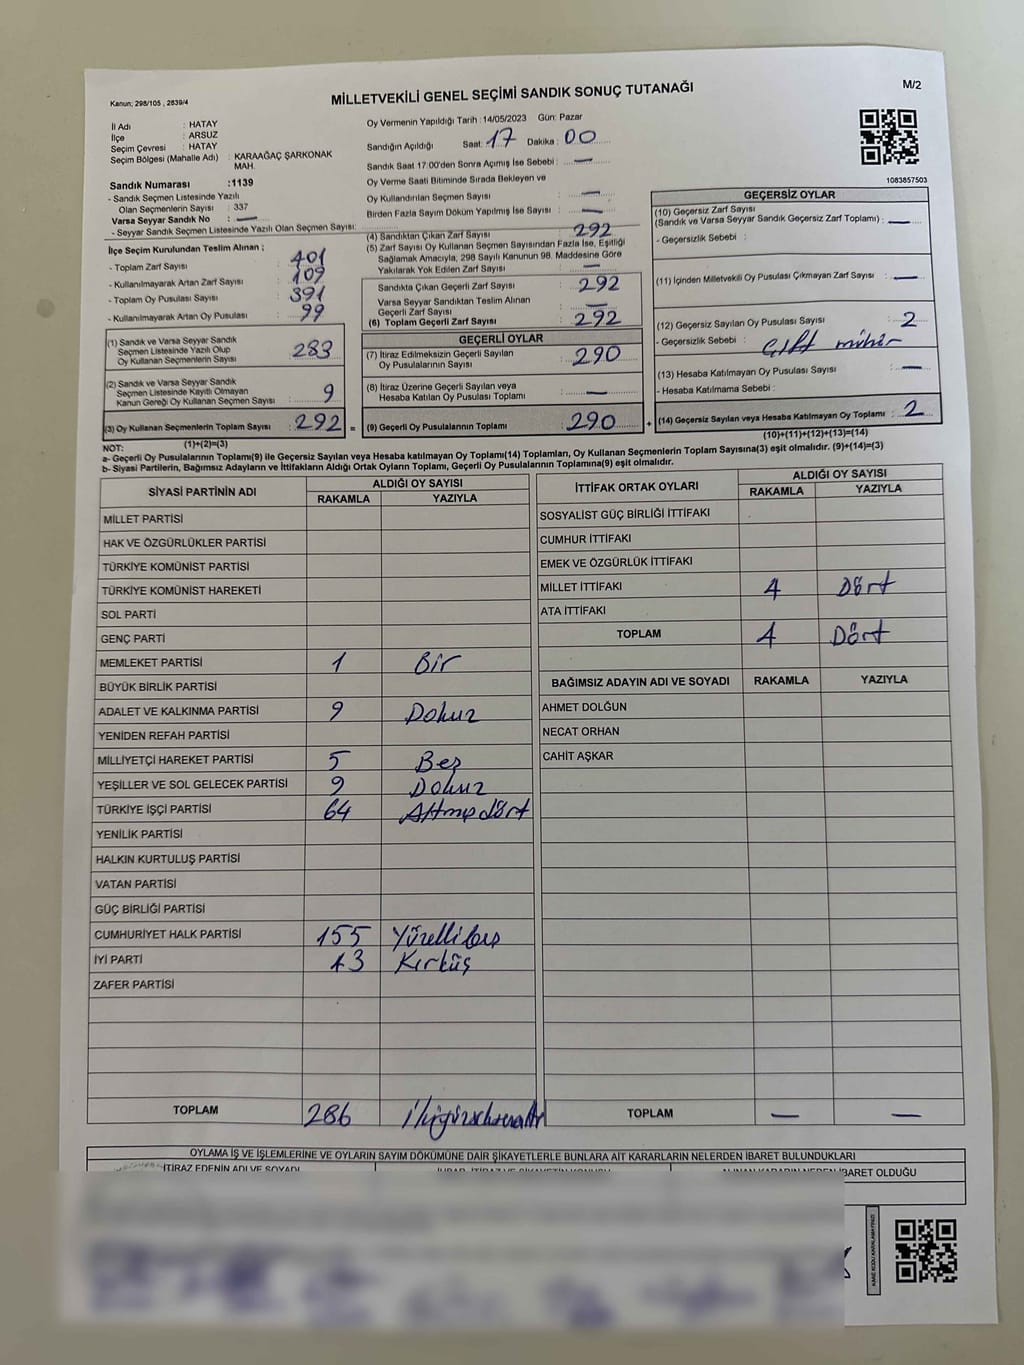 Kanun; 298/105 , 2839/4
MİLLETVEKİLİ GENEL SEÇİMİ SANDIK SONUÇ TUTANAĞI
M/2
İl Adı : HATAY
İlçe : ARSUZ
Seçim Çevresi : HATAY
Seçim Bölgesi (Mahalle Adı) : KARAAĞAÇ ŞARKONAK MAH.
Sandık Numarası :1139
- Sandık Seçmen Listesinde Yazılı
Olan Seçmenlerin Sayısı : 337
Varsa Seyyar Sandık No : —
- Seyyar Sandık Seçmen Listesinde Yazılı Olan Seçmen Sayısı:
Oy Vermenin Yapıldığı Tarih : 14/05/2023 Gün: Pazar
Sandığın Açıldığı Saat: 17 Dakika: 00
Sandık Saat 17:00'den Sonra Açımış İse Sebebi : —
Oy Verme Saati Bitiminde Sırada Bekleyen ve
Oy Kullandırılan Seçmen Sayısı : —
Birden Fazla Sayım Döküm Yapılmış İse Sayısı : —
1083857503
İlçe Seçim Kurulundan Teslim Alınan ;
- Toplam Zarf Sayısı : 401
- Kullanılmayarak Artan Zarf Sayısı : 109
- Toplam Oy Pusulası Sayısı : 391
- Kullanılmayarak Artan Oy Pusulası : 99
(1) Sandık ve Varsa Seyyar Sandık
Seçmen Listesinde Yazılı Olup
Oy Kullanan Seçmenlerin Sayısı : 283
(2) Sandık ve Varsa Seyyar Sandık
Seçmen Listesinde Kayıtlı Olmayan
Kanun Gereği Oy Kullanan Seçmen Sayısı : 9
(3) Oy Kullanan Seçmenlerin Toplam Sayısı : 292 =
(1)+(2)=(3)
(4) Sandıktan Çıkan Zarf Sayısı : 292
(5) Zarf Sayısı Oy Kullanan Seçmen Sayısından Fazla İse, Eşitliği
Sağlamak Amacıyla, 298 Sayılı Kanunun 98. Maddesine Göre
Yakılarak Yok Edilen Zarf Sayısı : —
Sandıkta Çıkan Geçerli Zarf Sayısı : 292
Varsa Seyyar Sandıktan Teslim Alınan
Geçerli Zarf Sayısı : —
(6) Toplam Geçerli Zarf Sayısı : 292
GEÇERLİ OYLAR
(7) İtiraz Edilmeksizin Geçerli Sayılan
Oy Pusulasının Sayısı : 290
(8) İtiraz Üzerine Geçerli Sayılan veya
Hesaba Katılan Oy Pusulası Toplamı : —
(9) Geçerli Oy Pusulalarının Toplamı : 290 +
GEÇERSİZ OYLAR
(10) Geçersiz Zarf Sayısı
(Sandık ve Varsa Seyyar Sandık Geçersiz Zarf Toplamı) : —
- Geçersizlik Sebebi :
(11) İçinden Milletvekili Oy Pusulası Çıkmayan Zarf Sayısı : —
(12) Geçersiz Sayılan Oy Pusulası Sayısı : 2
- Geçersizlik Sebebi : çift mühür
(13) Hesaba Katılmayan Oy Pusulası Sayısı : —
- Hesaba Katılmama Sebebi :
(14) Geçersiz Sayılan veya Hesaba Katılmayan Oy Toplamı : 2
(10)+(11)+(12)+(13)=(14)
NOT:
a- Geçerli Oy Pusulalarının Toplamı(9) ile Geçersiz Sayılan veya Hesaba katılmayan Oy Toplamı(14) Toplamları, Oy Kullanan Seçmenlerin Toplam Sayısına(3) eşit olmalıdır. (9)+(14)=(3)
b- Siyasi Partilerin, Bağımsız Adayların ve İttifakların Aldığı Ortak Oyların Toplamı, Geçerli Oy Pusulalarının Toplamına(9) eşit olmalıdır.
SİYASİ PARTİNİN ADI ALDIĞI OY SAYISI
RAKAMLA YAZIYLA
MİLLET PARTİSİ
HAK VE ÖZGÜRLÜKLER PARTİSİ
TÜRKİYE KOMÜNİST PARTİSİ
TÜRKİYE KOMÜNİST HAREKETİ
SOL PARTİ
GENÇ PARTİ
MEMLEKET PARTİSİ 1 Bir
BÜYÜK BİRLİK PARTİSİ
ADALET VE KALKINMA PARTİSİ 9 Dokuz
YENİDEN REFAH PARTİSİ
MİLLİYETÇİ HAREKET PARTİSİ 5 Beş
YEŞİLLER VE SOL GELECEK PARTİSİ 9 Dokuz
TÜRKİYE İŞÇİ PARTİSİ 64 Altmışdört
YENİLİK PARTİSİ
HALKIN KURTULUŞ PARTİSİ
VATAN PARTİSİ
GÜÇ BİRLİĞİ PARTİSİ
CUMHURİYET HALK PARTİSİ 155 Yüzellibeş
İYİ PARTİ 43 Kırküş
ZAFER PARTİSİ
TOPLAM 286
İTTİFAK ORTAK OYLARI ALDIĞI OY SAYISI
RAKAMLA YAZIYLA
SOSYALİST GÜÇ BİRLİĞİ İTTİFAKI
CUMHUR İTTİFAKI
EMEK VE ÖZGÜRLÜK İTTİFAKI
MİLLET İTTİFAKI 4 Dört
ATA İTTİFAKI
TOPLAM 4 Dört
BAĞIMSIZ ADAYIN ADI VE SOYADI RAKAMLA YAZIYLA
AHMET DOLĞUN
NECAT ORHAN
CAHİT AŞKAR
TOPLAM — —
OYLAMA İŞ VE İŞLEMLERİNE VE OYLARIN SAYIM DÖKÜMÜNE DAİR ŞİKAYETLERLE BUNLARA AİT KARARLARIN NELERDEN İBARET BULUNDUKLARI
İTİRAZ EDENİN ADI VE SOYADI
ALINAN KARARIN NEDEN İBARET OLDUĞU